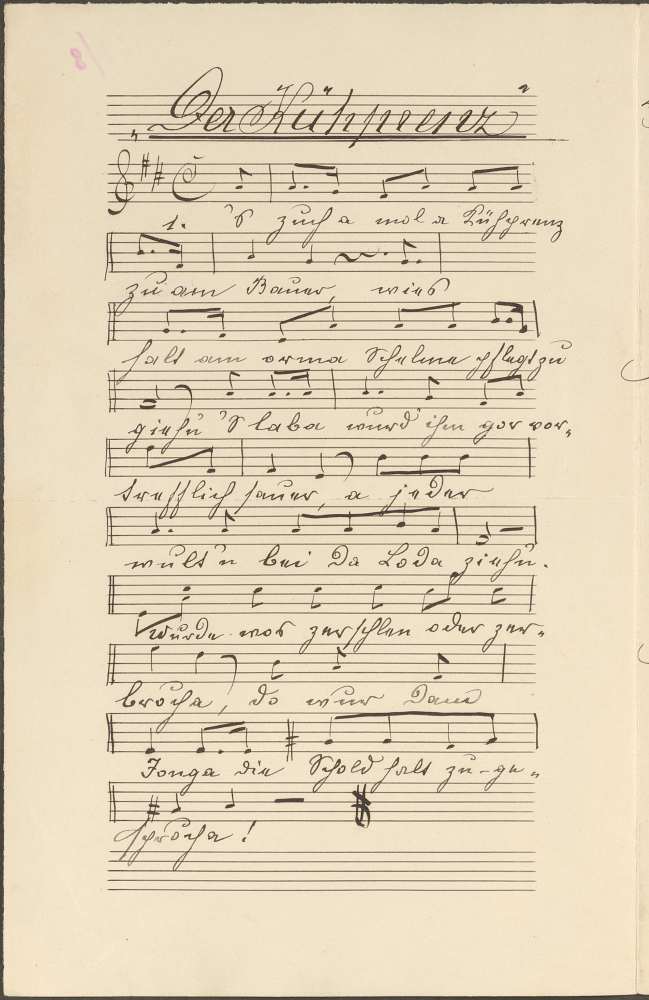 8/
„Der Kühprenz"
1. 'S zuch a mol a Kühprenz
zu am Bauer, wies
halt am orma Schelma pflegt zu
giehn 'S laba wurd' ihm gor vor„
trefflich sauer, a jeder
wullt'n bei da Loda ziehn.
Wurde wos zerschlen oder zer„
brocha, do wur dam
Jonga die Schold halt zu-ge„
sprocha!